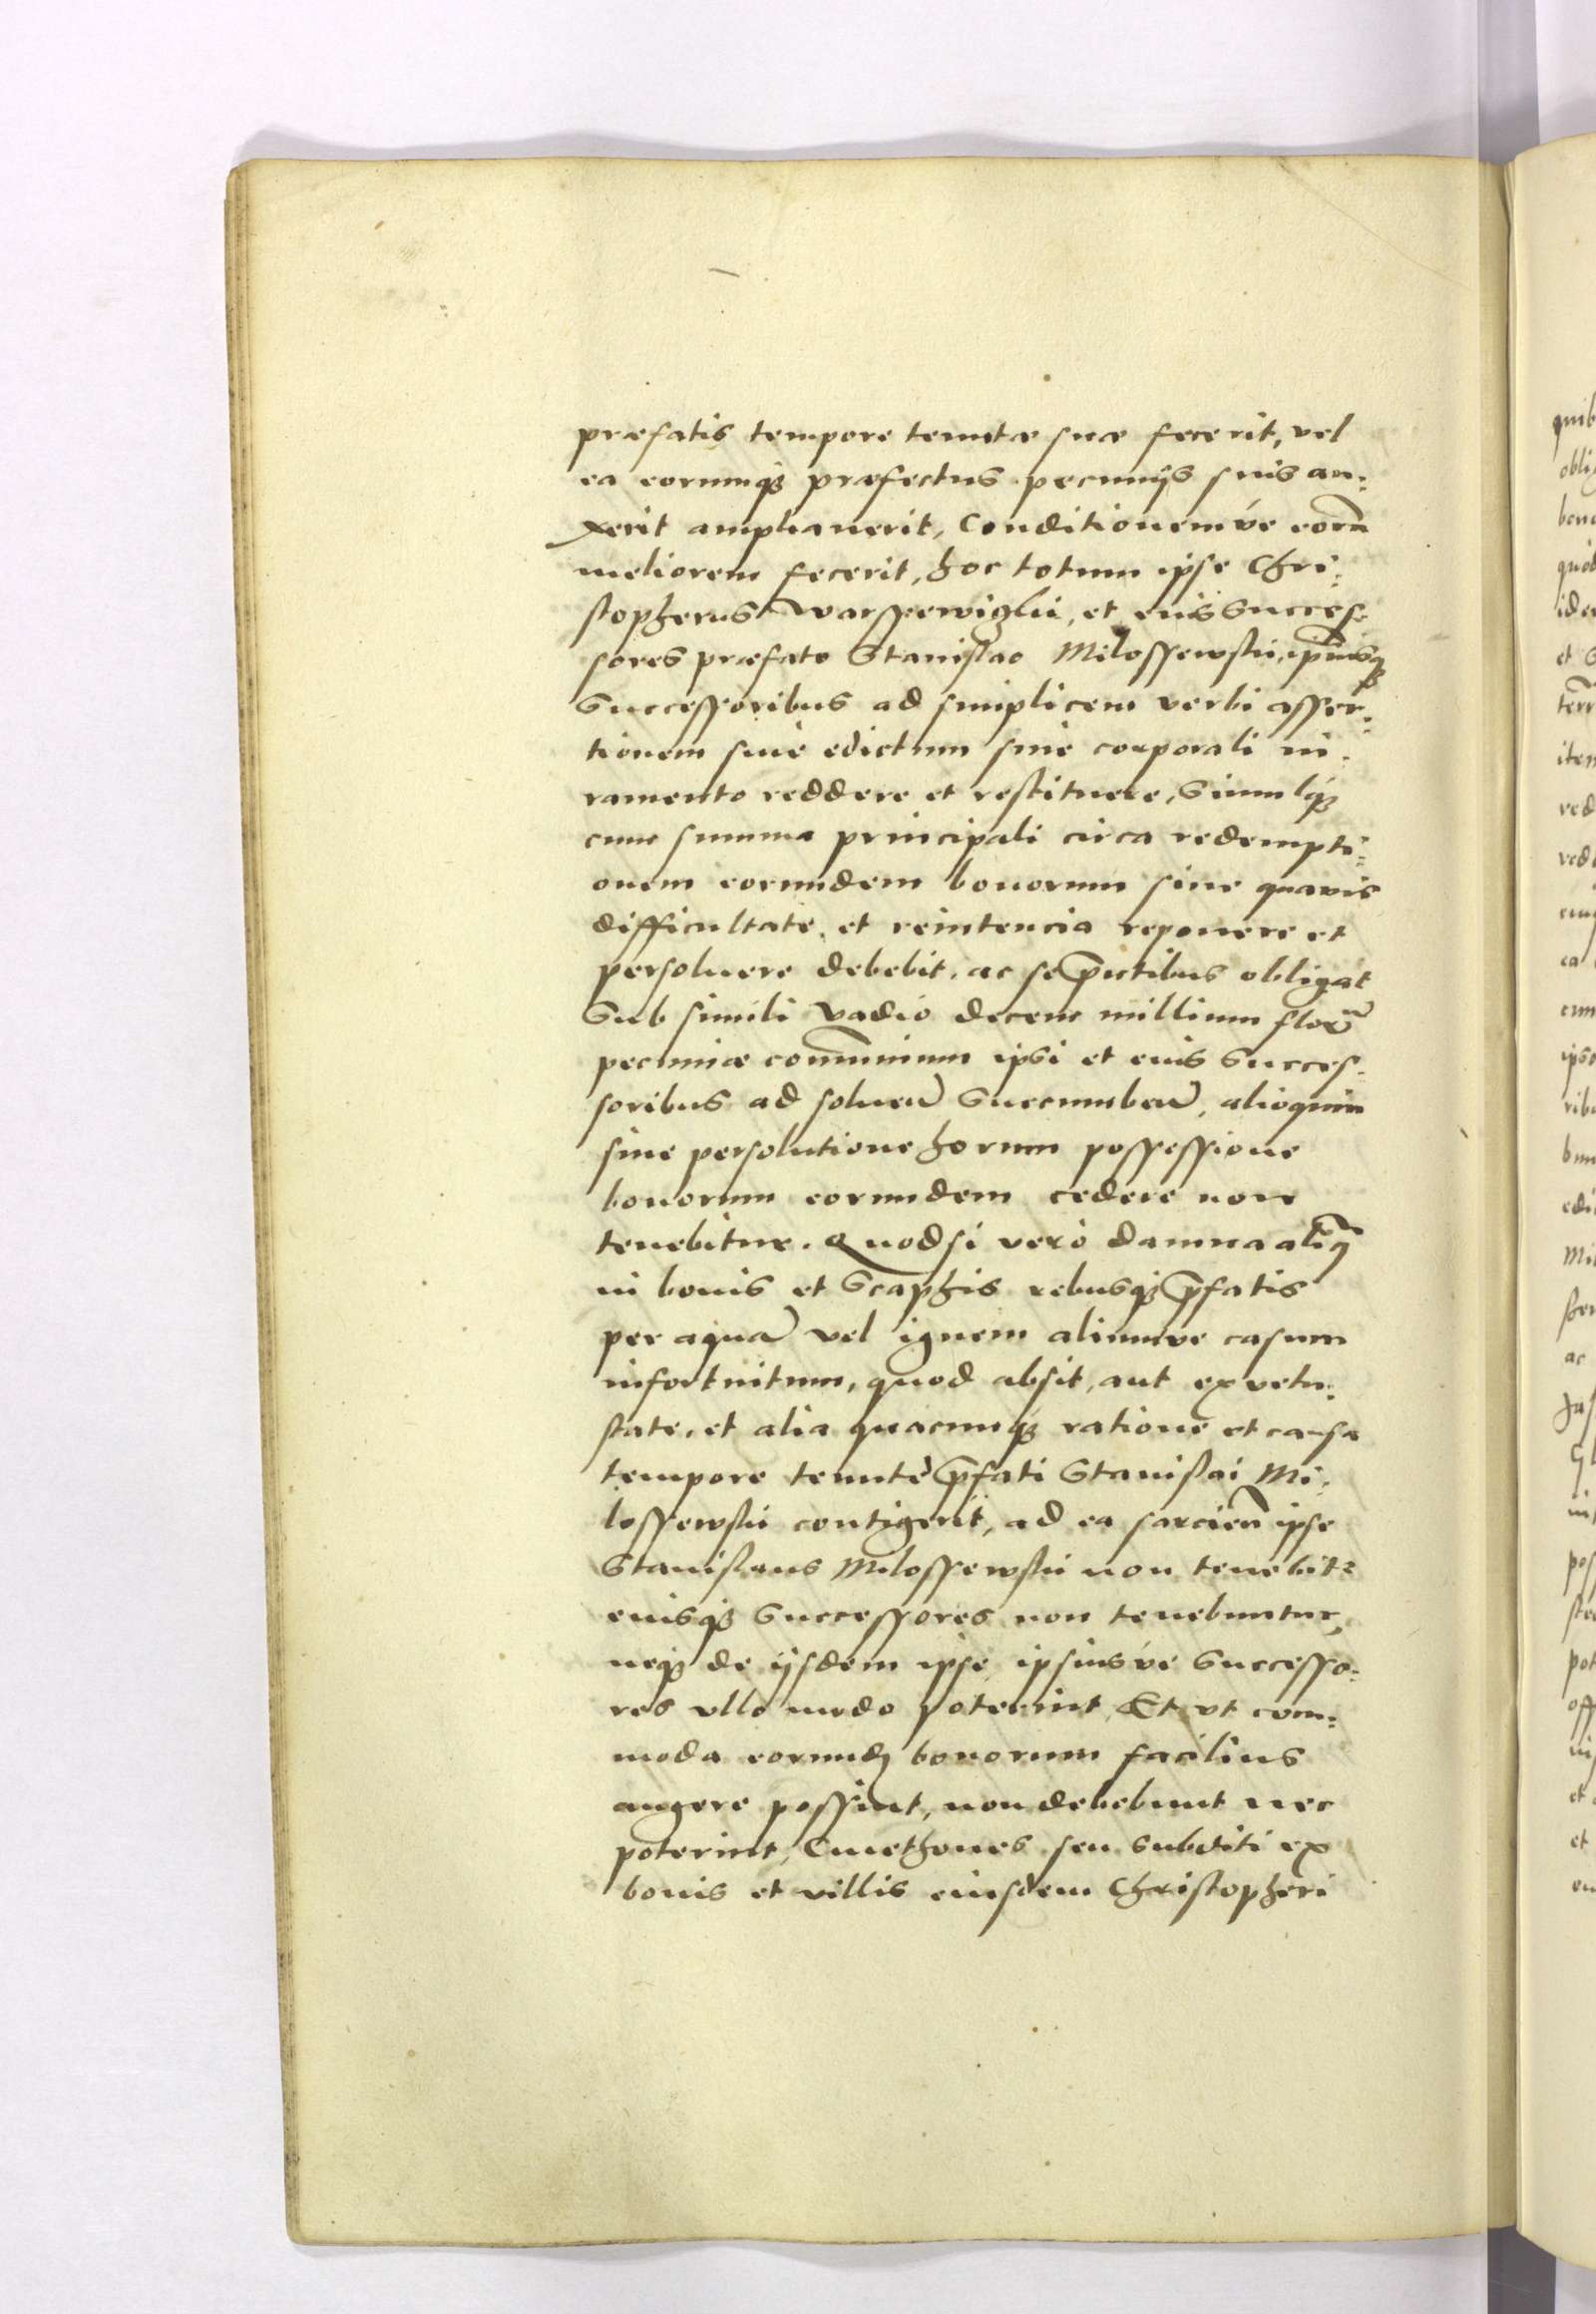 præfatis tempore tenutæ suæ fecerit, vel
ea eorumq₃ præfectus pecunijs suis au:
xerit ampliauerit, Conditionemve eorũ
meliorem fecerit, hoc totum ipse Chri:
stopherus Warssewiczkii, et eius succes:
sores præfato Stanislao Milossewskii, ipsiusq₃
Successoribus ad simplicem verbi asser:
tionem siue edictum sine corporali iu:
ramento reddere et restituere, Simulq₃
cum summa principali circa redempti:
onem eorundem bonorum sine quavis
difficultate, et reintencia reponere et
persoluere debebit, ac se p̃ntibus obligat
Sub simili vadio decem millium florẽ
pecuniæ com̃unium ipsi et eius Succes:
soribus ad soluen̄ Succumben̄, alioquin
sine persolutione horum possessione
bonorum eorundem cedere non
tenebitur. Quodsi verò damna aliq̃
in bonis et Scaphis rebusq₃ p̃fatis
per aquā vel ignem aliumve casum
infortuitum, quod absit, aut ex vetu:
state, et alia quacunq₃ ratione et causa
tempore tenutè p̃fati Stanislai Mi:
lossewskii contigerit, ad ea sarcien̄ ipse
Stanislaus Milossewskii non tenebit2
eiusq₃ Successores non tenebuntur,
neq₃ de ijsdem ipse ipsiusve Successo:
res vllo modo poterint, Et vt com:
moda eorundē bonorum facilius
augere possint, non debebunt nec
poterint, Cmethones seu subditi ex
bonis et villis eiusdem Christopheri